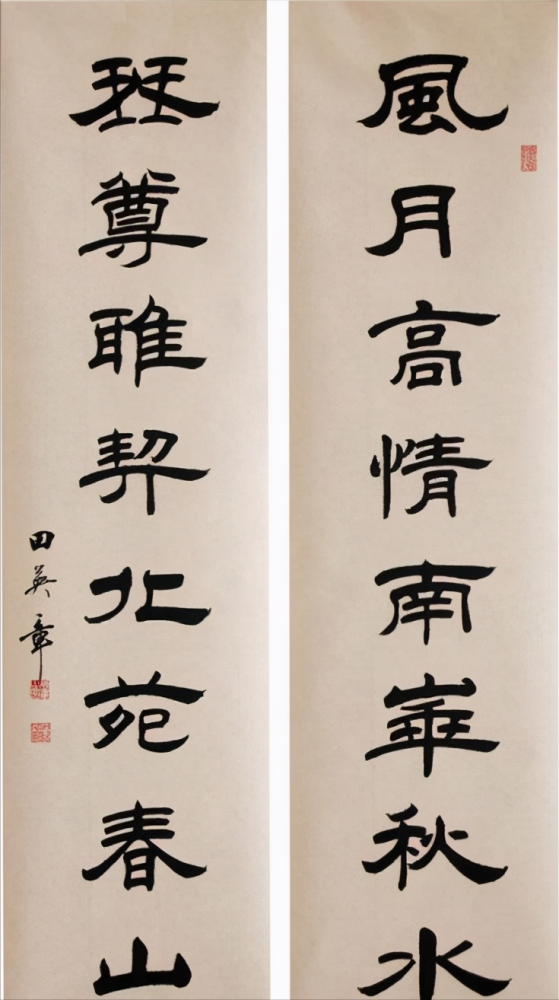 風月高情南華秋水
琴尊雅契北苑春山
田英章